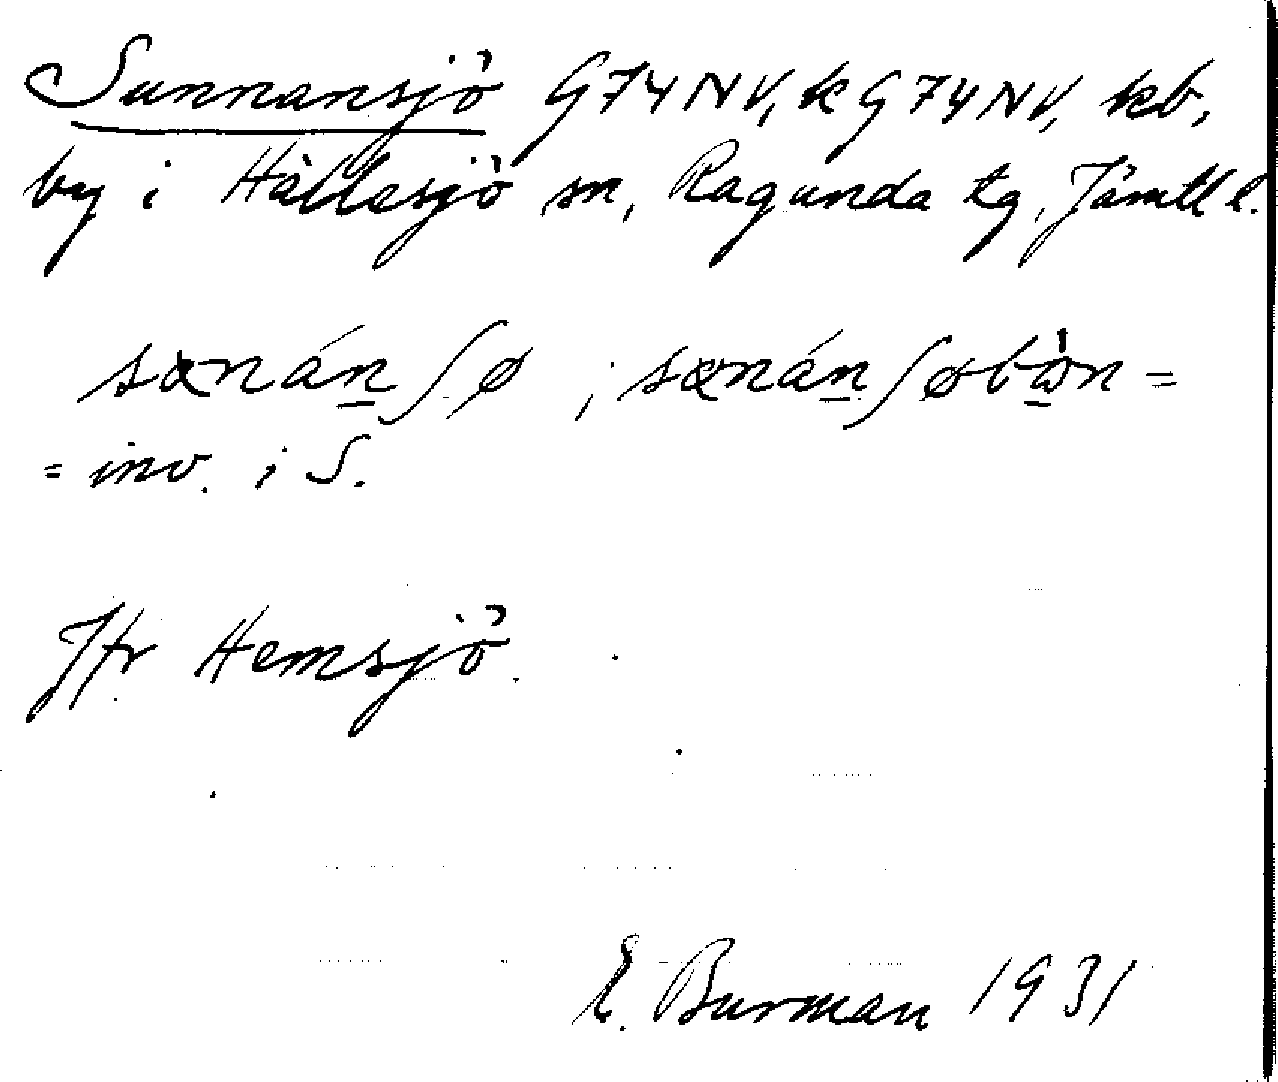 Sunnansjö G74NV, k G74NV, kb,
by i Hällesjö sn, Ragunda tg, Jämtl l.
sœnánʃø ; sœnánʃøbòn=
= inv. i S.
Jfr Hemsjö.
E. Burman 1931